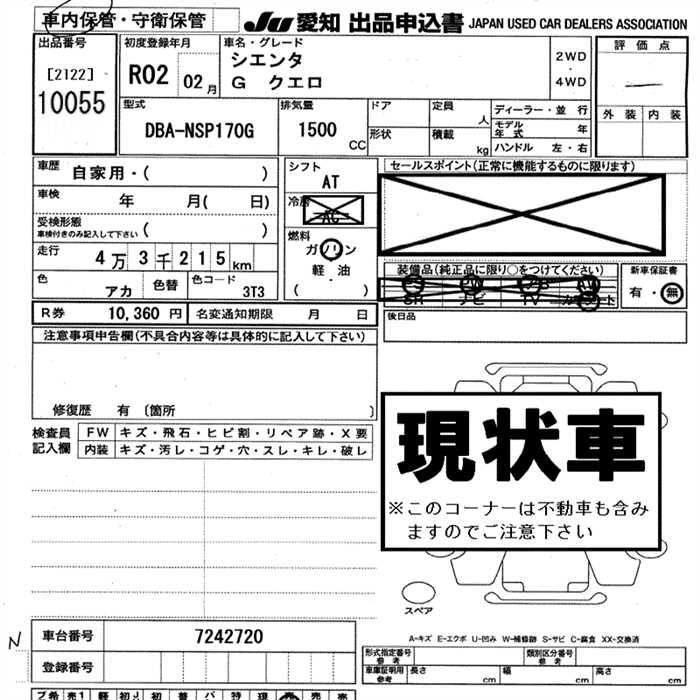 車内保管・守衛保管
JU 愛知 出品申込書 JAPAN USED CAR DEALERS ASSOCIATION
出品番号
[2122]
10055
初度登録年月
R02 02月
車名・グレード
シエンタ
G クエロ
2WD
・
4WD
評価点
外装 内装
型式
DBA-NSP170G
排気量
1500
CC
ドア
形状
定員 人
積載 kg
ディーラー・並行
モデル年式 年
ハンドル 左・右
車歴 自家用・( )
車検 年 月( 日)
受検形態
車検付きのみ記入して下さい ( )
走行 4万3千215km
色 アカ 色替 色コード 3T3
シフト
AT
冷房
AC
燃料
ガソリン
軽・油
( ・ )
セールスポイント(正常に機能するものに限ります)
装備品(純正品に限り○をつけてください)
PS PW AB AW
SR ナビ TV
新車保証書
有・無
R券 10,360 円 名変通知期限 月 日
後日品
注意事項申告欄(不具合内容等は具体的に記入して下さい)
修復歴 有 〔箇所 〕
検査員
記入欄
FW キズ・飛石・ヒビ割・リペア跡・X要
内装 キズ・汚レ・コゲ・穴・スレ・キレ・破レ
現状車
※このコーナーは不動車も含み
ますのでご注意下さい
スペア
N
車台番号 7242720
登録番号
A-キズ E-エクボ U-凹み W-補修跡 S-サビ C-腐食 XX-交換済
形式指定番号
参考
類別区分番号
参考
車庫証明用
参考
長さ cm 幅 cm 高さ cm